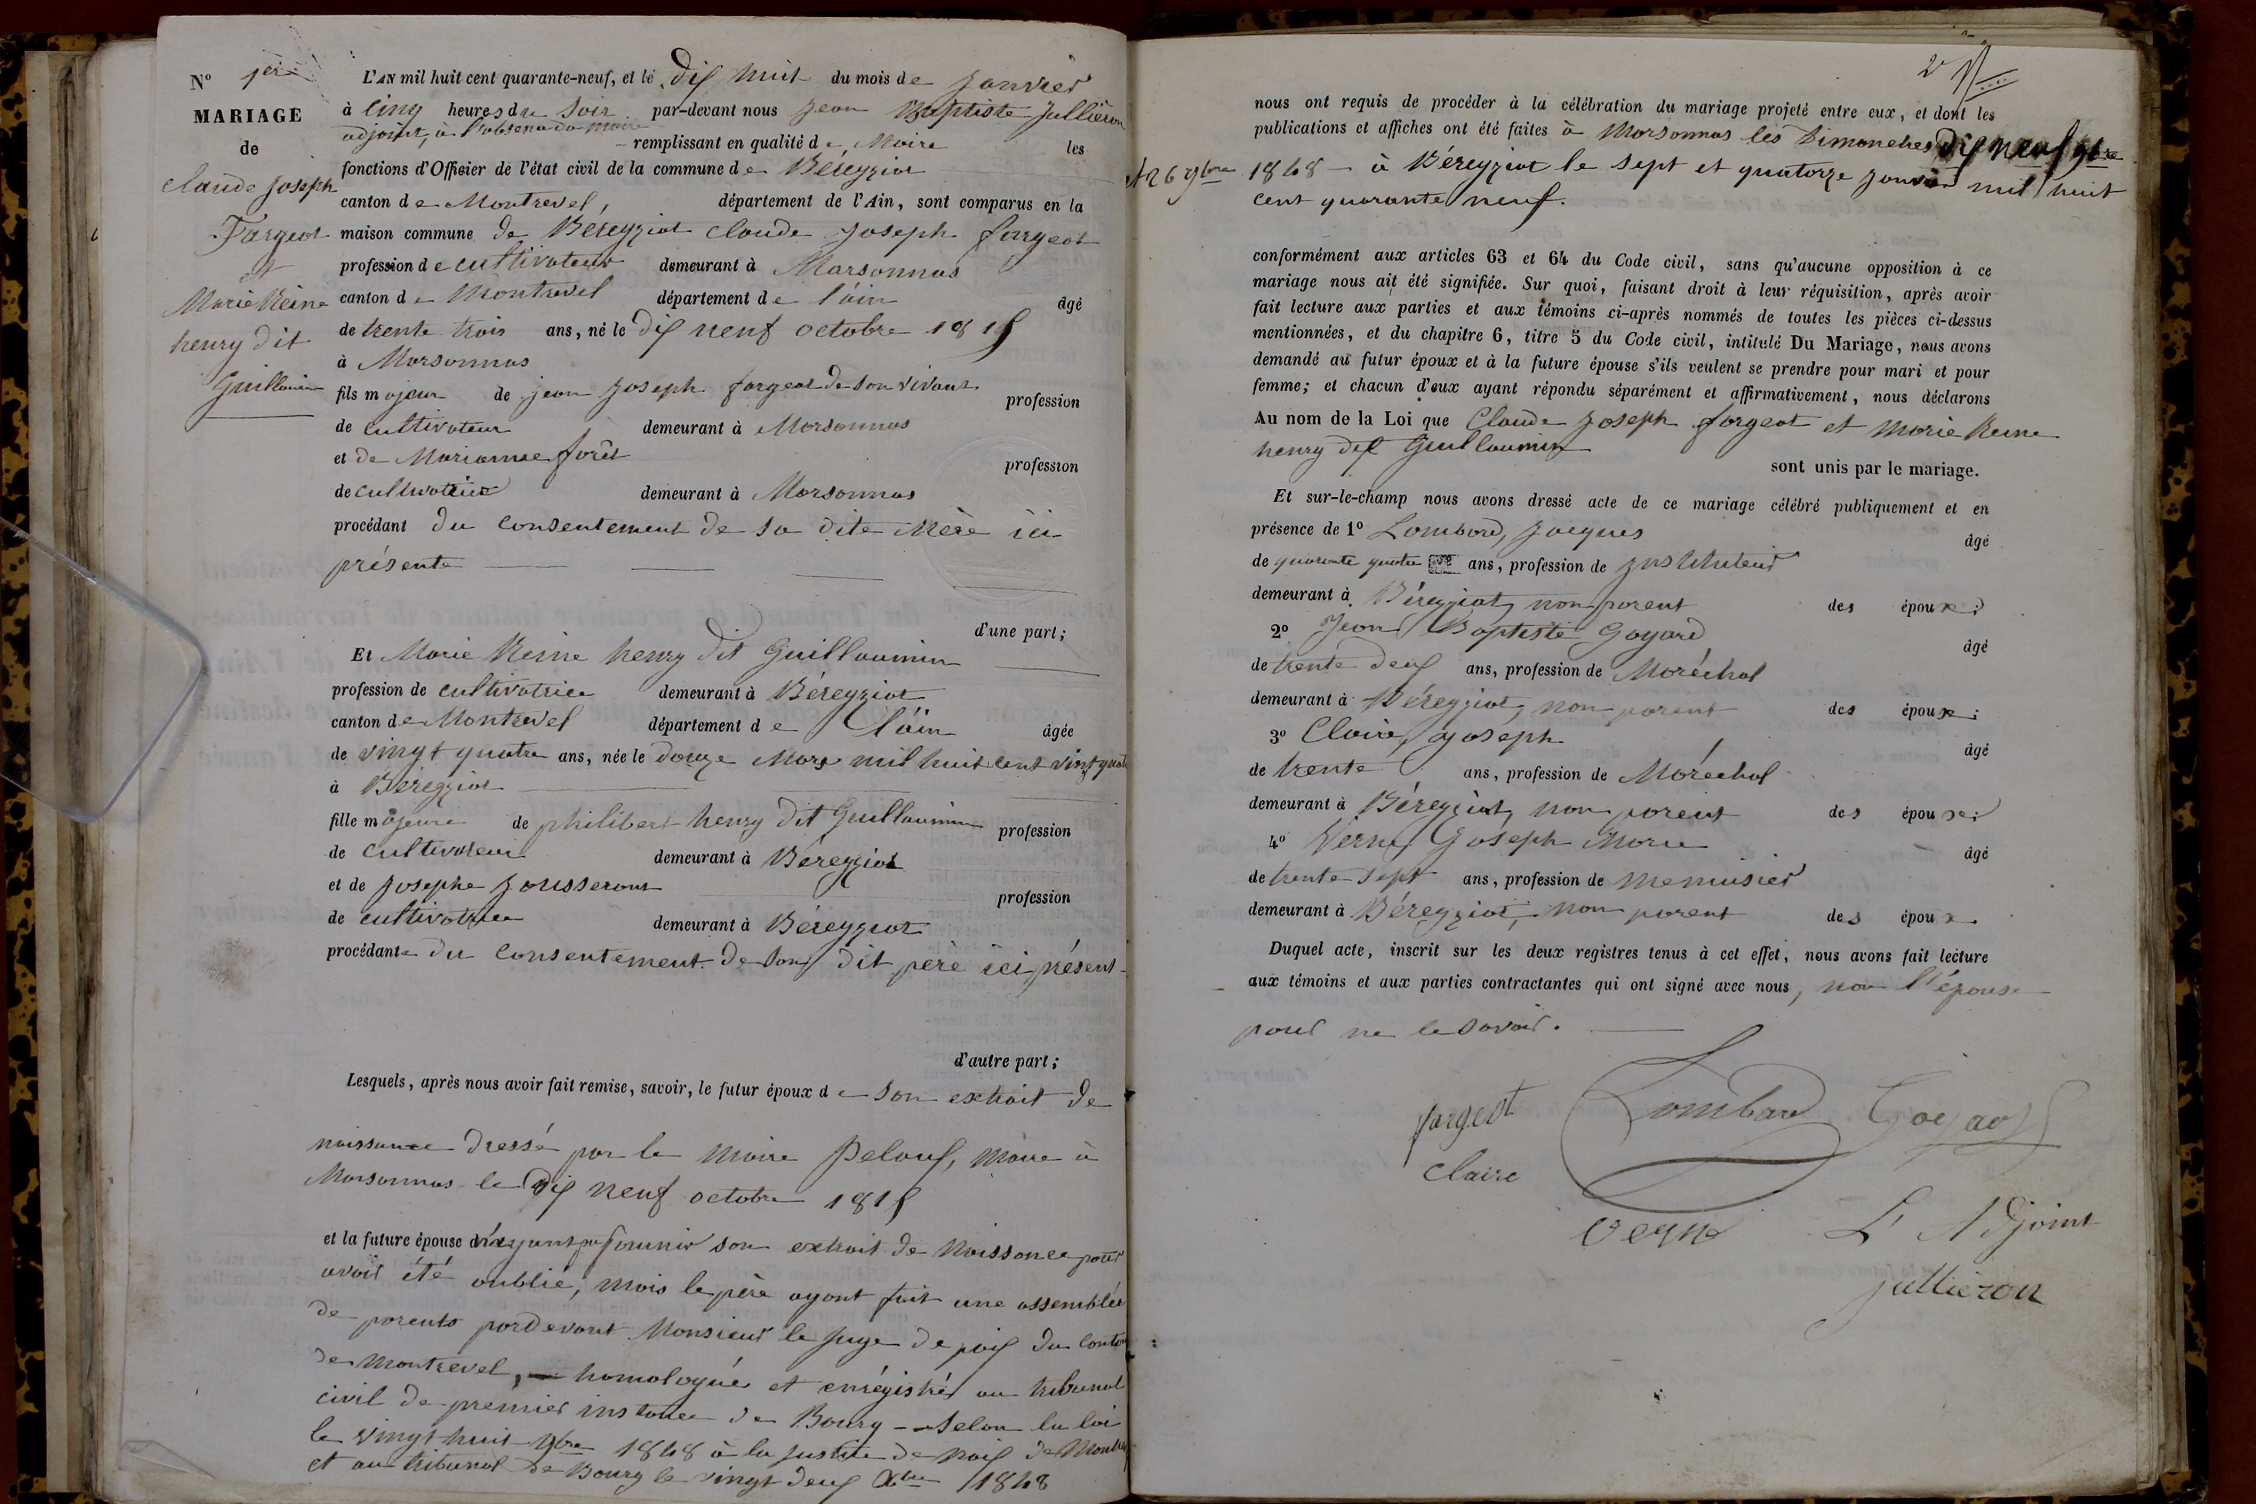 N° 1er
MARIAGE
de
Claude Joseph
Fargeot
et
Marie Reine
henry dit
Guillaumin
L'AN mil huit cent quarante-neuf, et le dix huit du mois de Janvier
à cinq heures du soir par-devant nous Jean Baptiste Jullieron
adjoint, à l'absence du maire
remplissant en qualité de Maire les
fonctions d'Officier de l'état civil de la commune de Béreyziat
canton de Montrevel, département de l'Ain, sont comparus en la
maison commune de Béreyziat Claude Joseph fargeot
profession de cultivateur demeurant à Marsonnas
canton de Montrevel département de l'ain âgé
de trente trois ans, né le dix neuf octobre 1815
à Marsonnas
fils majeur de jean Joseph fargeot de son vivant profession
de cultivateur demeurant à Marsonnas
et de Marianne forêt profession
de cultivatrice demeurant à Marsonnas
procédant du consentement de sa dite mère ici
présente
d'une part;
Et Marie Reine henry dit Guillaumin
profession de cultivatrice demeurant à Béreyziat
canton de Montrevel département de l'ain âgée
de vingt quatre ans, née le douze Mars mil huit cent vingt quatre
à Béreyziat
fille majeure de philibert henry dit Guillaumin profession
de cultivateur demeurant à Béreyziat
et de Josephe Jousserant profession
de cultivatrice demeurant à Béreyziat
procédante du consentement de son dit père ici présent
d'autre part;
Lesquels, après nous avoir fait remise, savoir, le futur époux de son extrait de
naissance dressé par le maire Peloux, maire à
Marsonnas le dix neuf octobre 1815
et la future épouse n'ayant pu fournir son extrait de naissance pour
avoir été oublié, mais le père ayant fait une assemblée
de parents pardevant Monsieur le Juge de paix du Canton
de Montrevel, homologué et enrégistré au tribunal
civil de premier instance de Bourg selon la loi
le vingt huit 9bre 1848 à la justice de paix de Montrevel
et au tribunal de Bourg le vingt deux Xbre 1848
2
nous ont requis de procéder à la célébration du mariage projeté entre eux, et dont les
publications et affiches ont été faites à Marsonnas les Dimanches dix neuf 9bre
et 26 9bre 1848 - à Béreyziat le sept et quatorze janvier mil huit
cent quarante neuf.
conformément aux articles 63 et 64 du Code civil, sans qu'aucune opposition à ce
mariage nous ait été signifiée. Sur quoi, faisant droit à leur réquisition, après avoir
fait lecture aux parties et aux témoins ci-après nommés de toutes les pièces ci-dessus
mentionnées, et du chapitre 6, titre 5 du Code civil, intitulé Du Mariage, nous avons
demandé au futur époux et à la future épouse s'ils veulent se prendre pour mari et pour
femme; et chacun d'eux ayant répondu séparément et affirmativement, nous déclarons
Au nom de la Loi que Claude Joseph fargeot et Marie Reine
henry dit Guillaumin
sont unis par le mariage.
Et sur-le-champ nous avons dressé acte de ce mariage célébré publiquement et en
présence de 1° Lombard, Jacques âgé
de quarante quatre ans, profession de Instituteur
demeurant à Béreyziat, non parent des époux;
2° Jean Baptiste Goyard âgé
de trente deux ans, profession de Maréchal
demeurant à Béreyziat, non parent des époux;
3° Claire, Joseph âgé
de trente ans, profession de Maréchal
demeurant à Béreyziat, non parent des époux;
4° Verne Joseph Marie âgé
de trente sept ans, profession de menuisier
demeurant à Béreyziat, non parent des époux
Duquel acte, inscrit sur les deux registres tenus à cet effet, nous avons fait lecture
aux témoins et aux parties contractantes qui ont signé avec nous, non l'épouse
pour ne le savoir.
fargeot Lombard Goyard
Claire
verne L'Adjoint
Jullieron